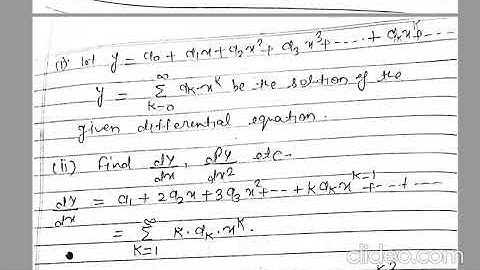 (i) let y = a₀ + a₁x + a₂x² + a₃x³ + ---- + aₖxᵏ + ---
y = ∑_{k=0}^{∞} aₖ.xᵏ be the solution of the
given differential equation.
(ii) find dy/dx, d²y/dx² etc.
dy/dx = a₁ + 2a₂x + 3a₃x² + --- + k aₖ x^{k-1} + --- + ----
= ∑_{k=1}^{∞} k.aₖ.xᵏ.
clideo.com